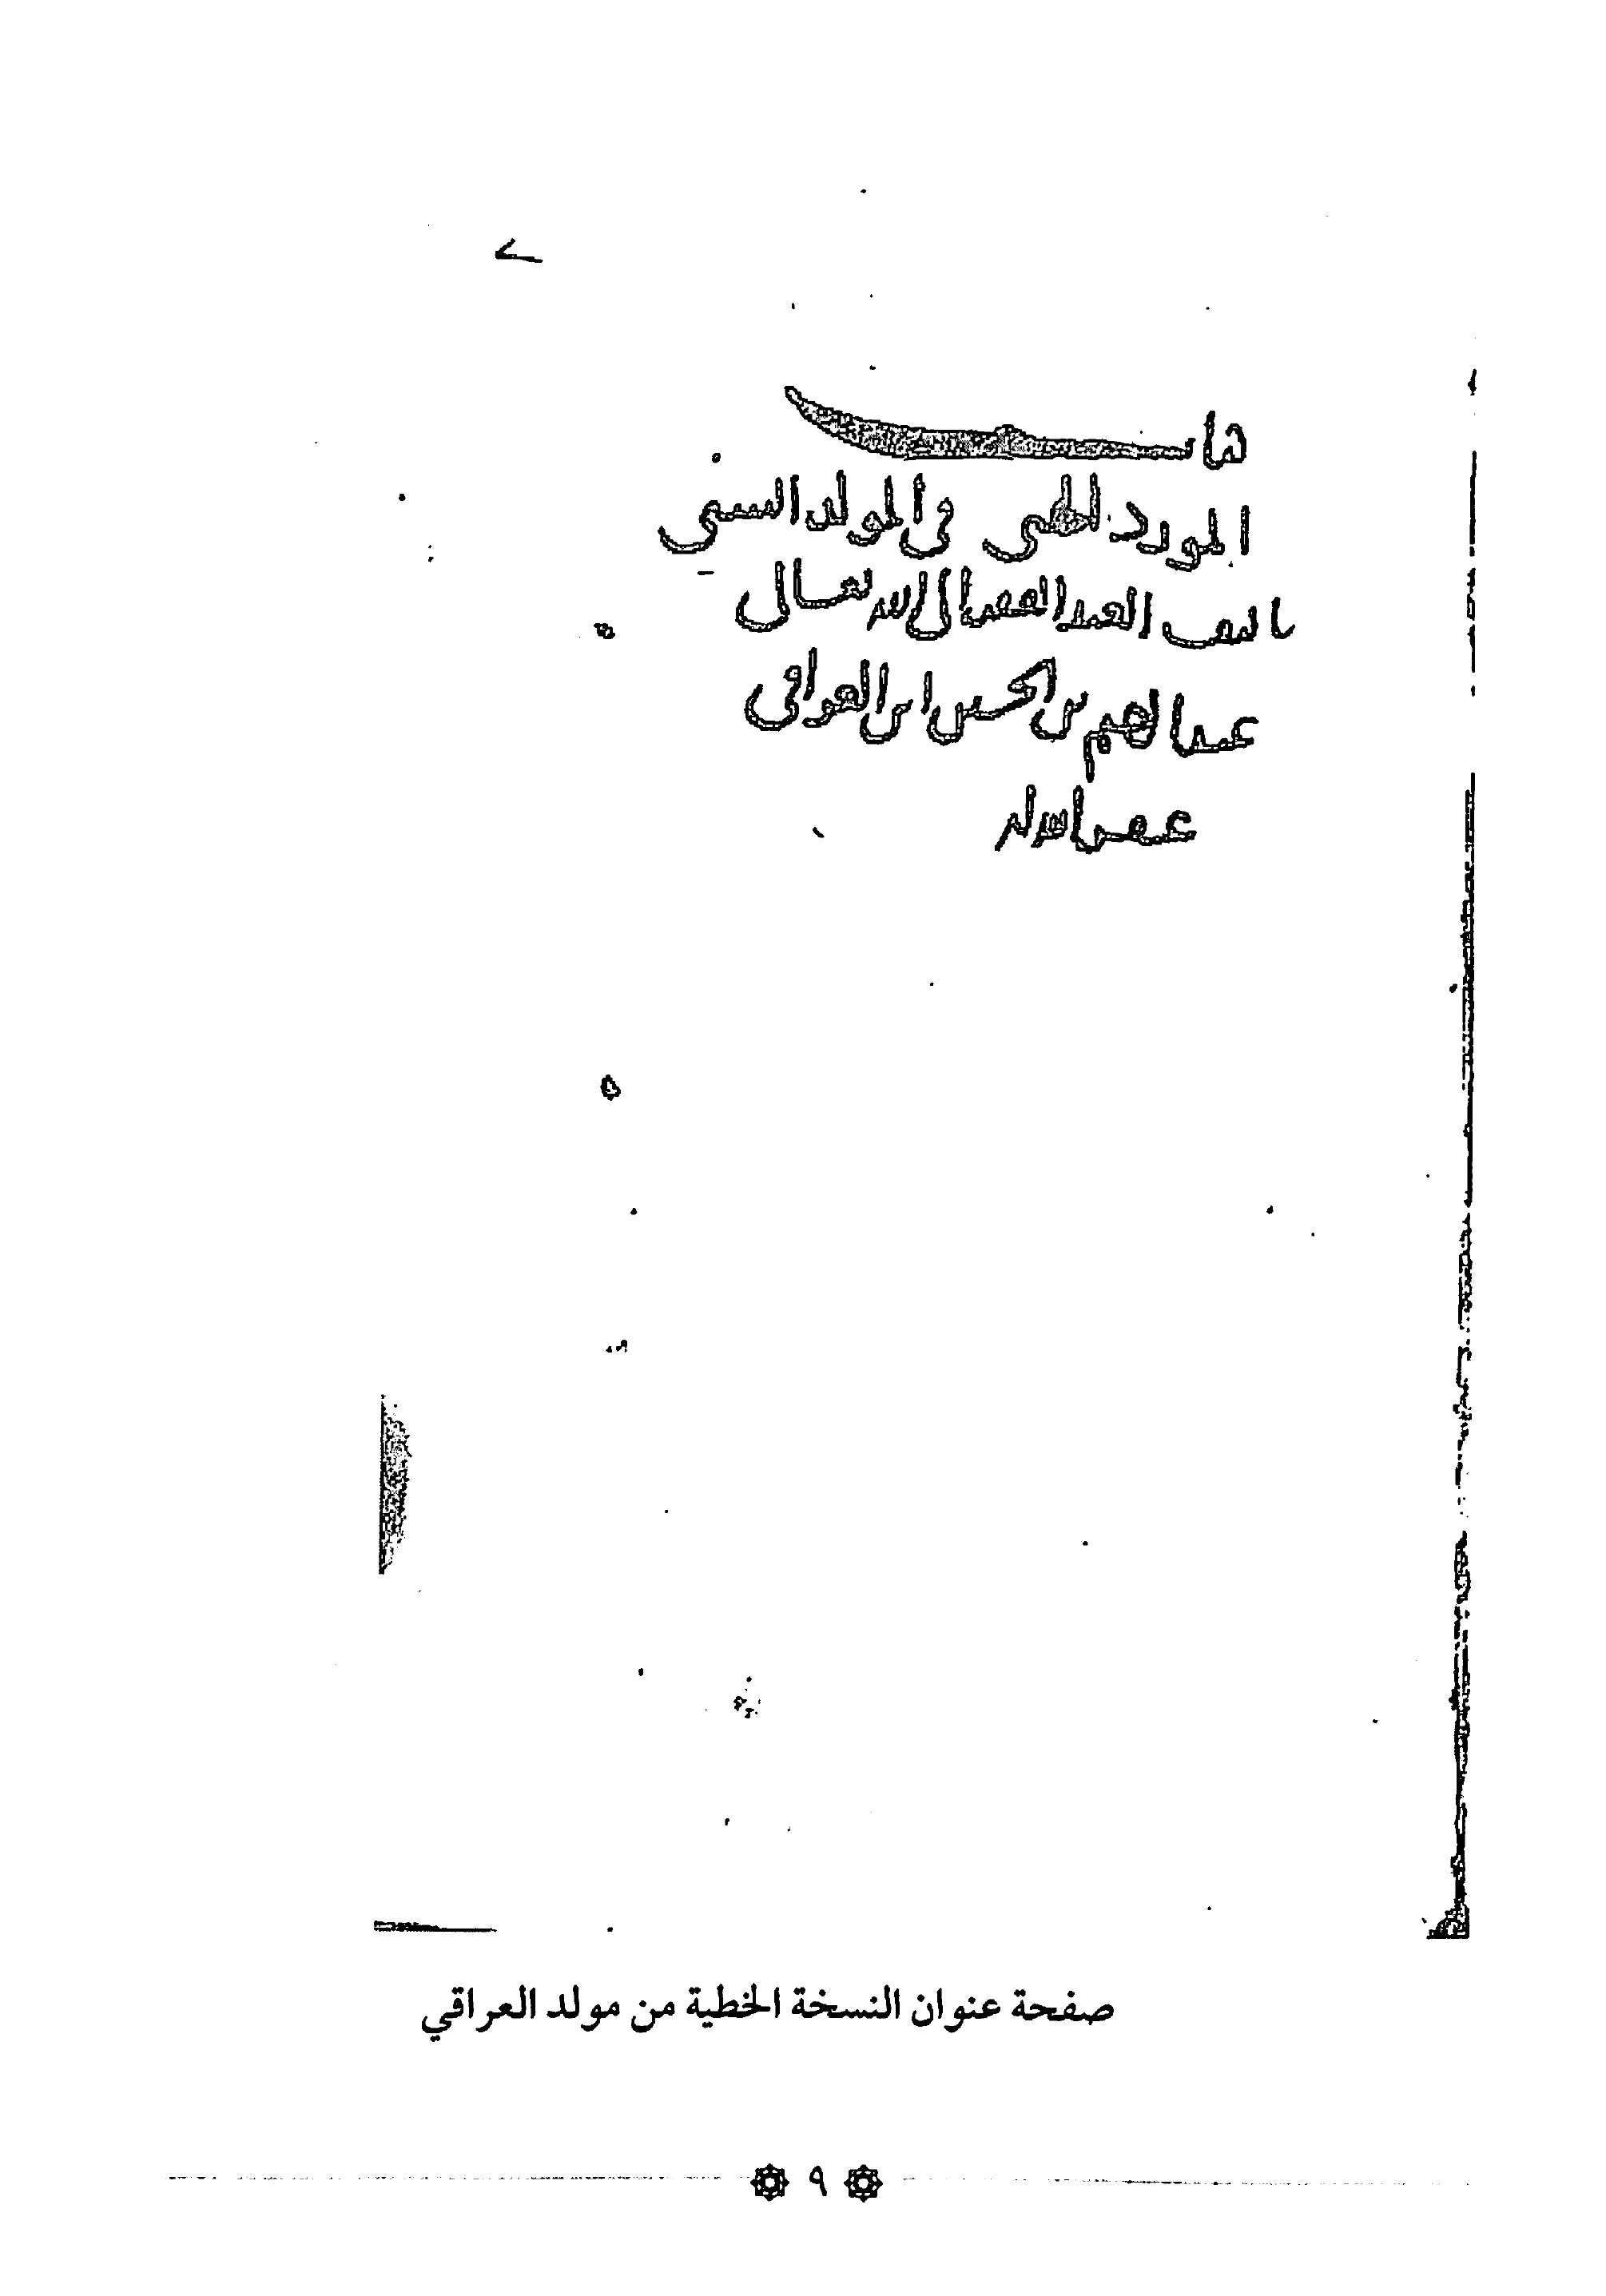 كتاب
المورد الهني في المولد السني
تاليف العبد الفقير الى الله تعالى
عبد الرحيم بن الحسين ابن العراقي
غفر الله له
صفحة عنوان النسخة الخطية من مولد العراقي
٩